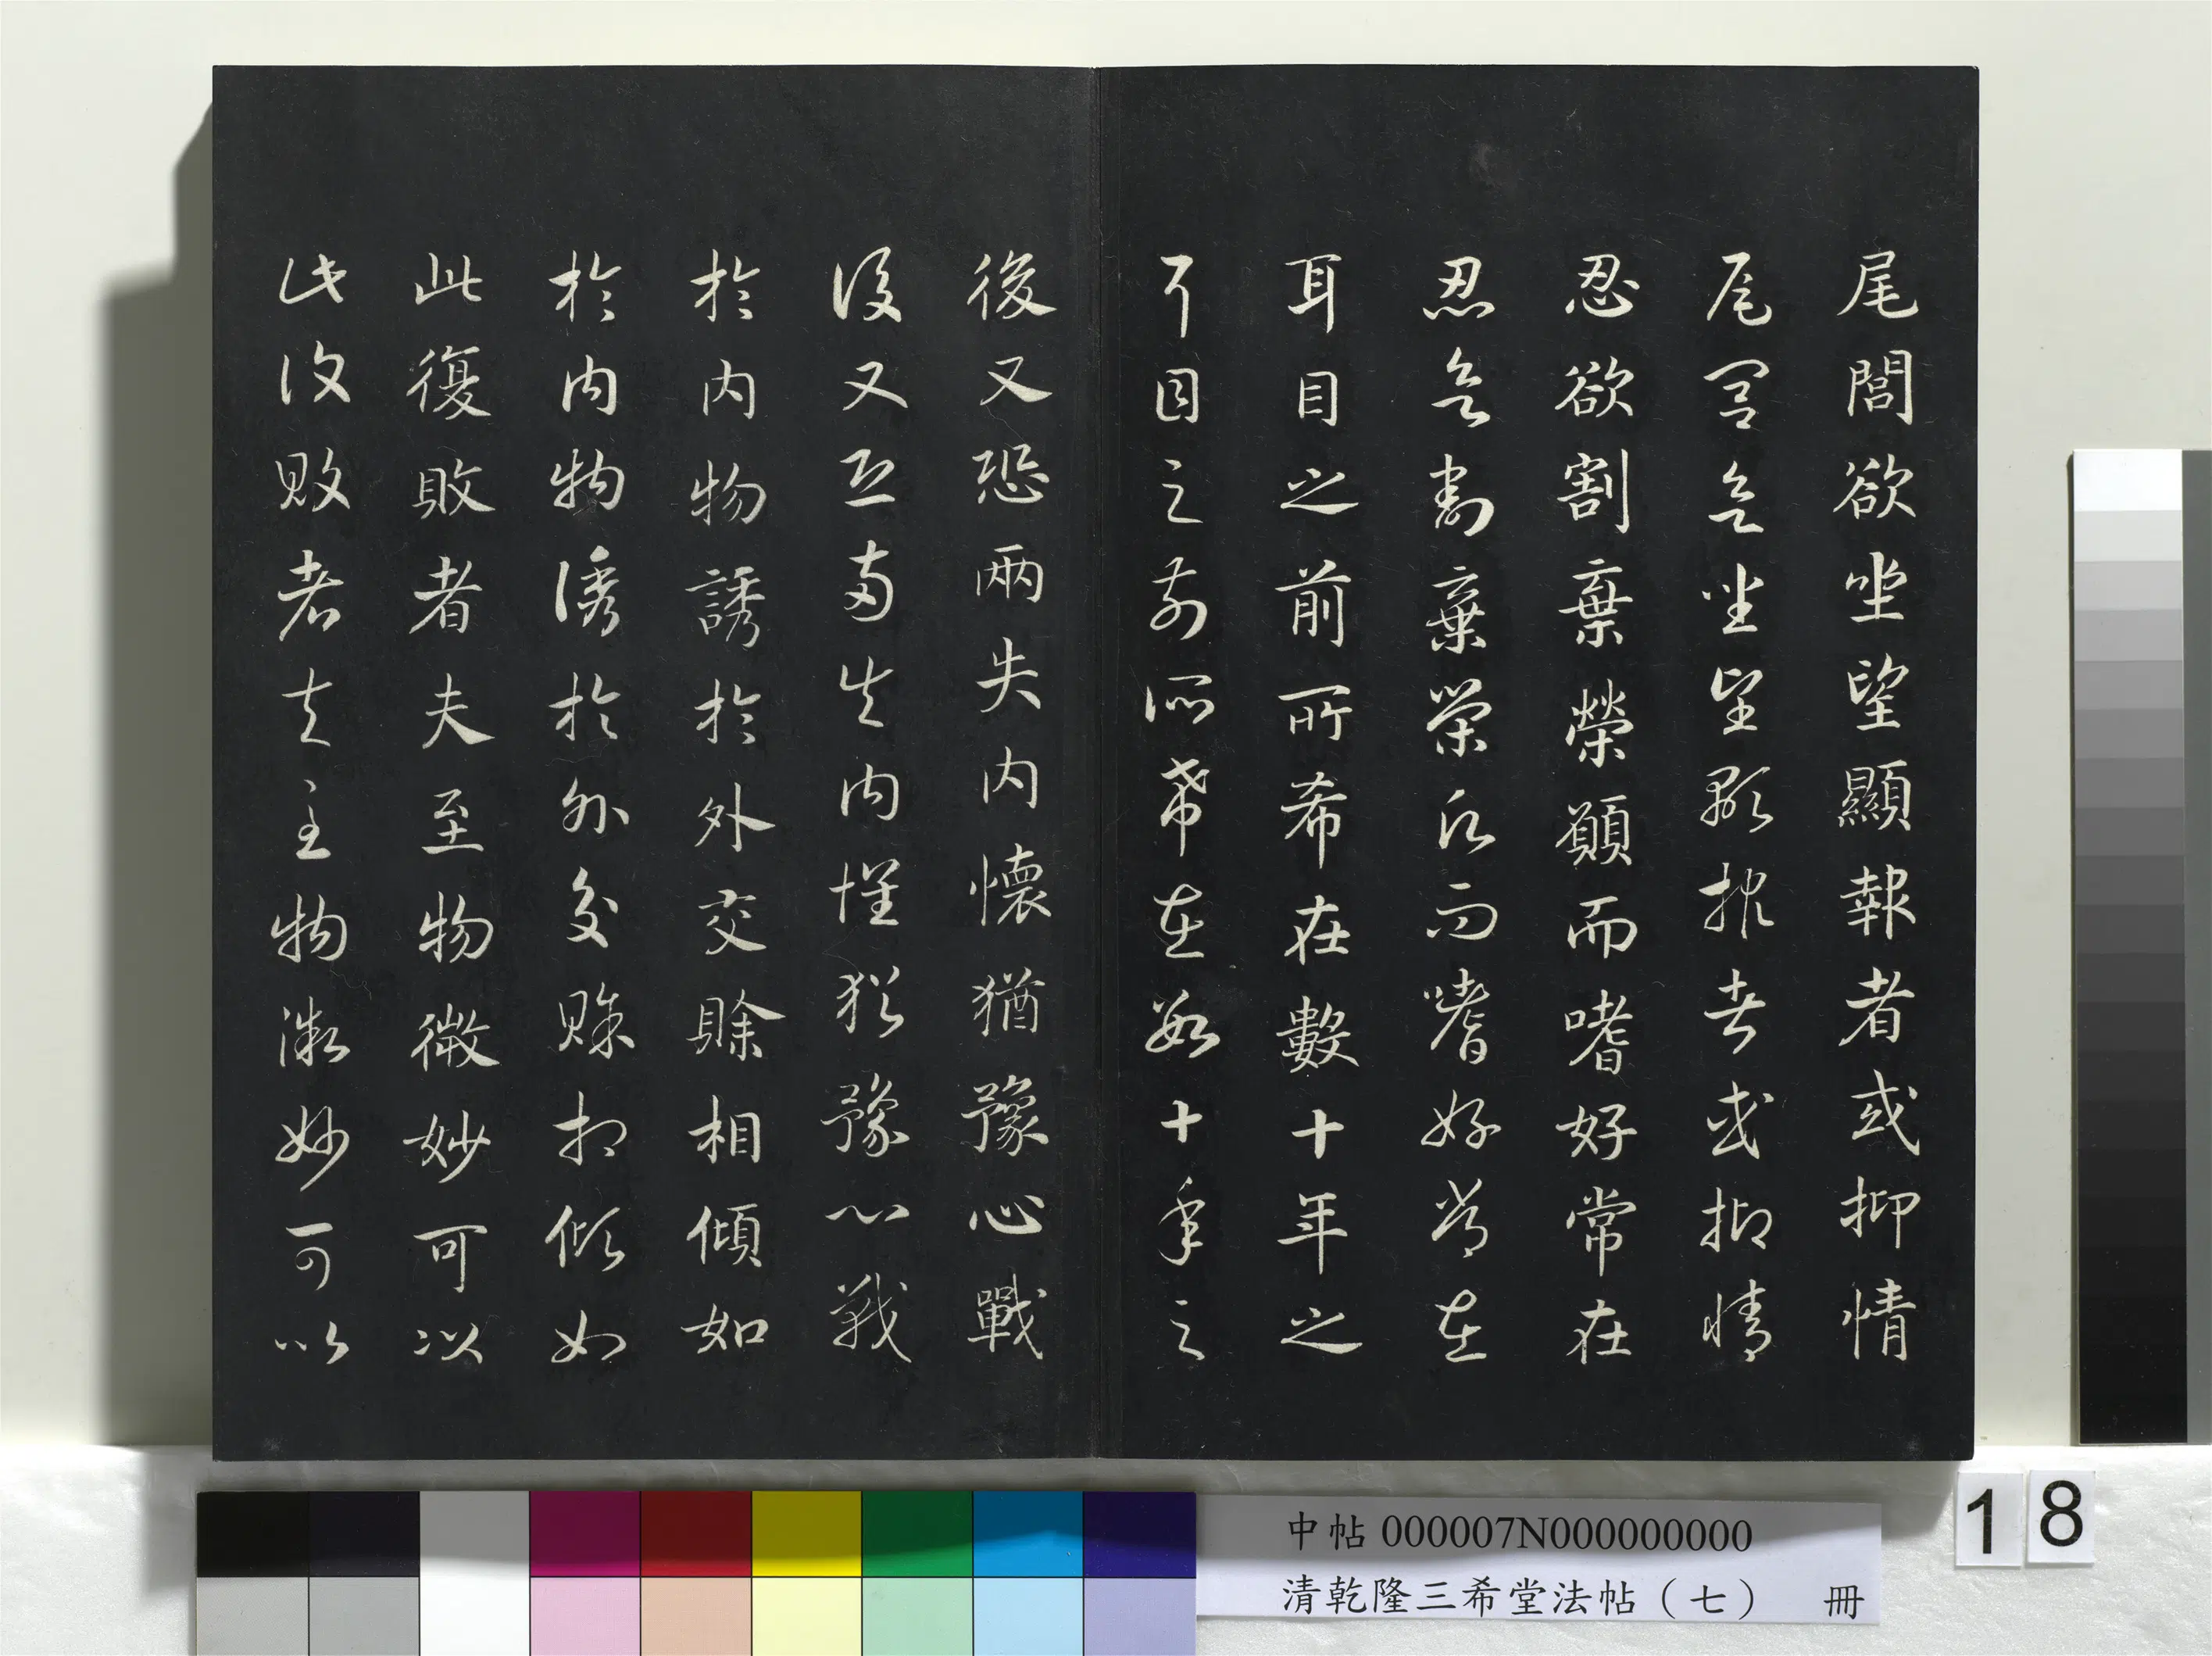 尾閭欲坐望顯報者或抑情
尾閭欲坐望顯報者或抑情
忍欲割棄榮願而嗜好常在
忍欲割棄榮願而嗜好常在
耳目之前所希在數十年之
耳目之前所希在數十年之
後又恐兩失內懷猶豫心戰
後又恐兩失內懷猶豫心戰
於內物誘於外交賒相傾如
於內物誘於外交賒相傾如
此復敗者夫至物微妙可以
此復敗者夫至物微妙可以
中帖 000007N000000000
清乾隆三希堂法帖（七） 冊
18